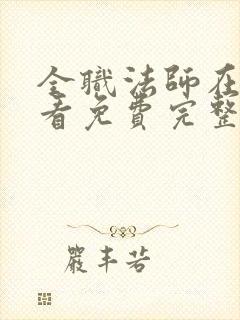 全職法師在
看免費完整
嚴丰若